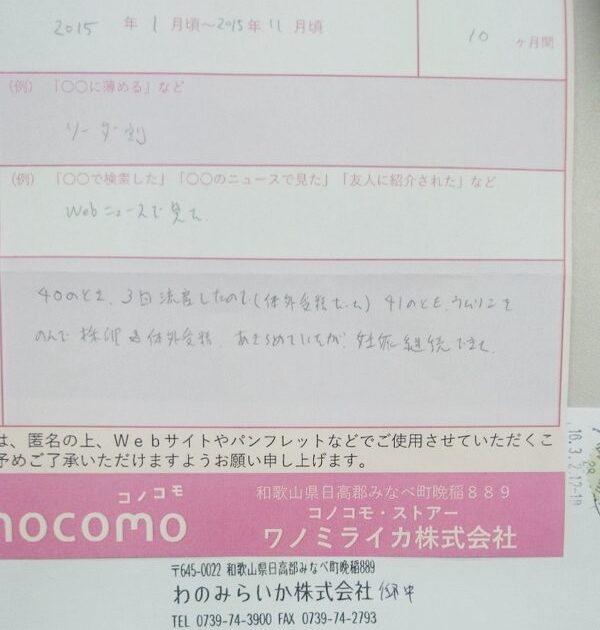 2015 年 1 月頃～2015 年 11 月頃
10 ヶ月間
（例）「〇〇に薄める」など
ソーダ割
（例）「〇〇で検索した」「〇〇のニュースで見た」「友人に紹介された」など
Webニュースで見た
40のとき、3回流産したので(体外受精で) 41のとき、ウムリンを
のんで 体外受精、あきらめていたが、妊娠継続できた。
は、匿名の上、Ｗｅｂサイトやパンフレットなどでご使用させていただくこ
予めご了承いただけますようお願い申し上げます。
コノコモ
nocomo
和歌山県日高郡みなべ町晩稲８８９
コノコモ・ストアー
ワノミライカ株式会社
〒645-0022 和歌山県日高郡みなべ町晩稲889
わのみらいか株式会社 御中
TEL 0739-74-3900 FAX 0739-74-2793